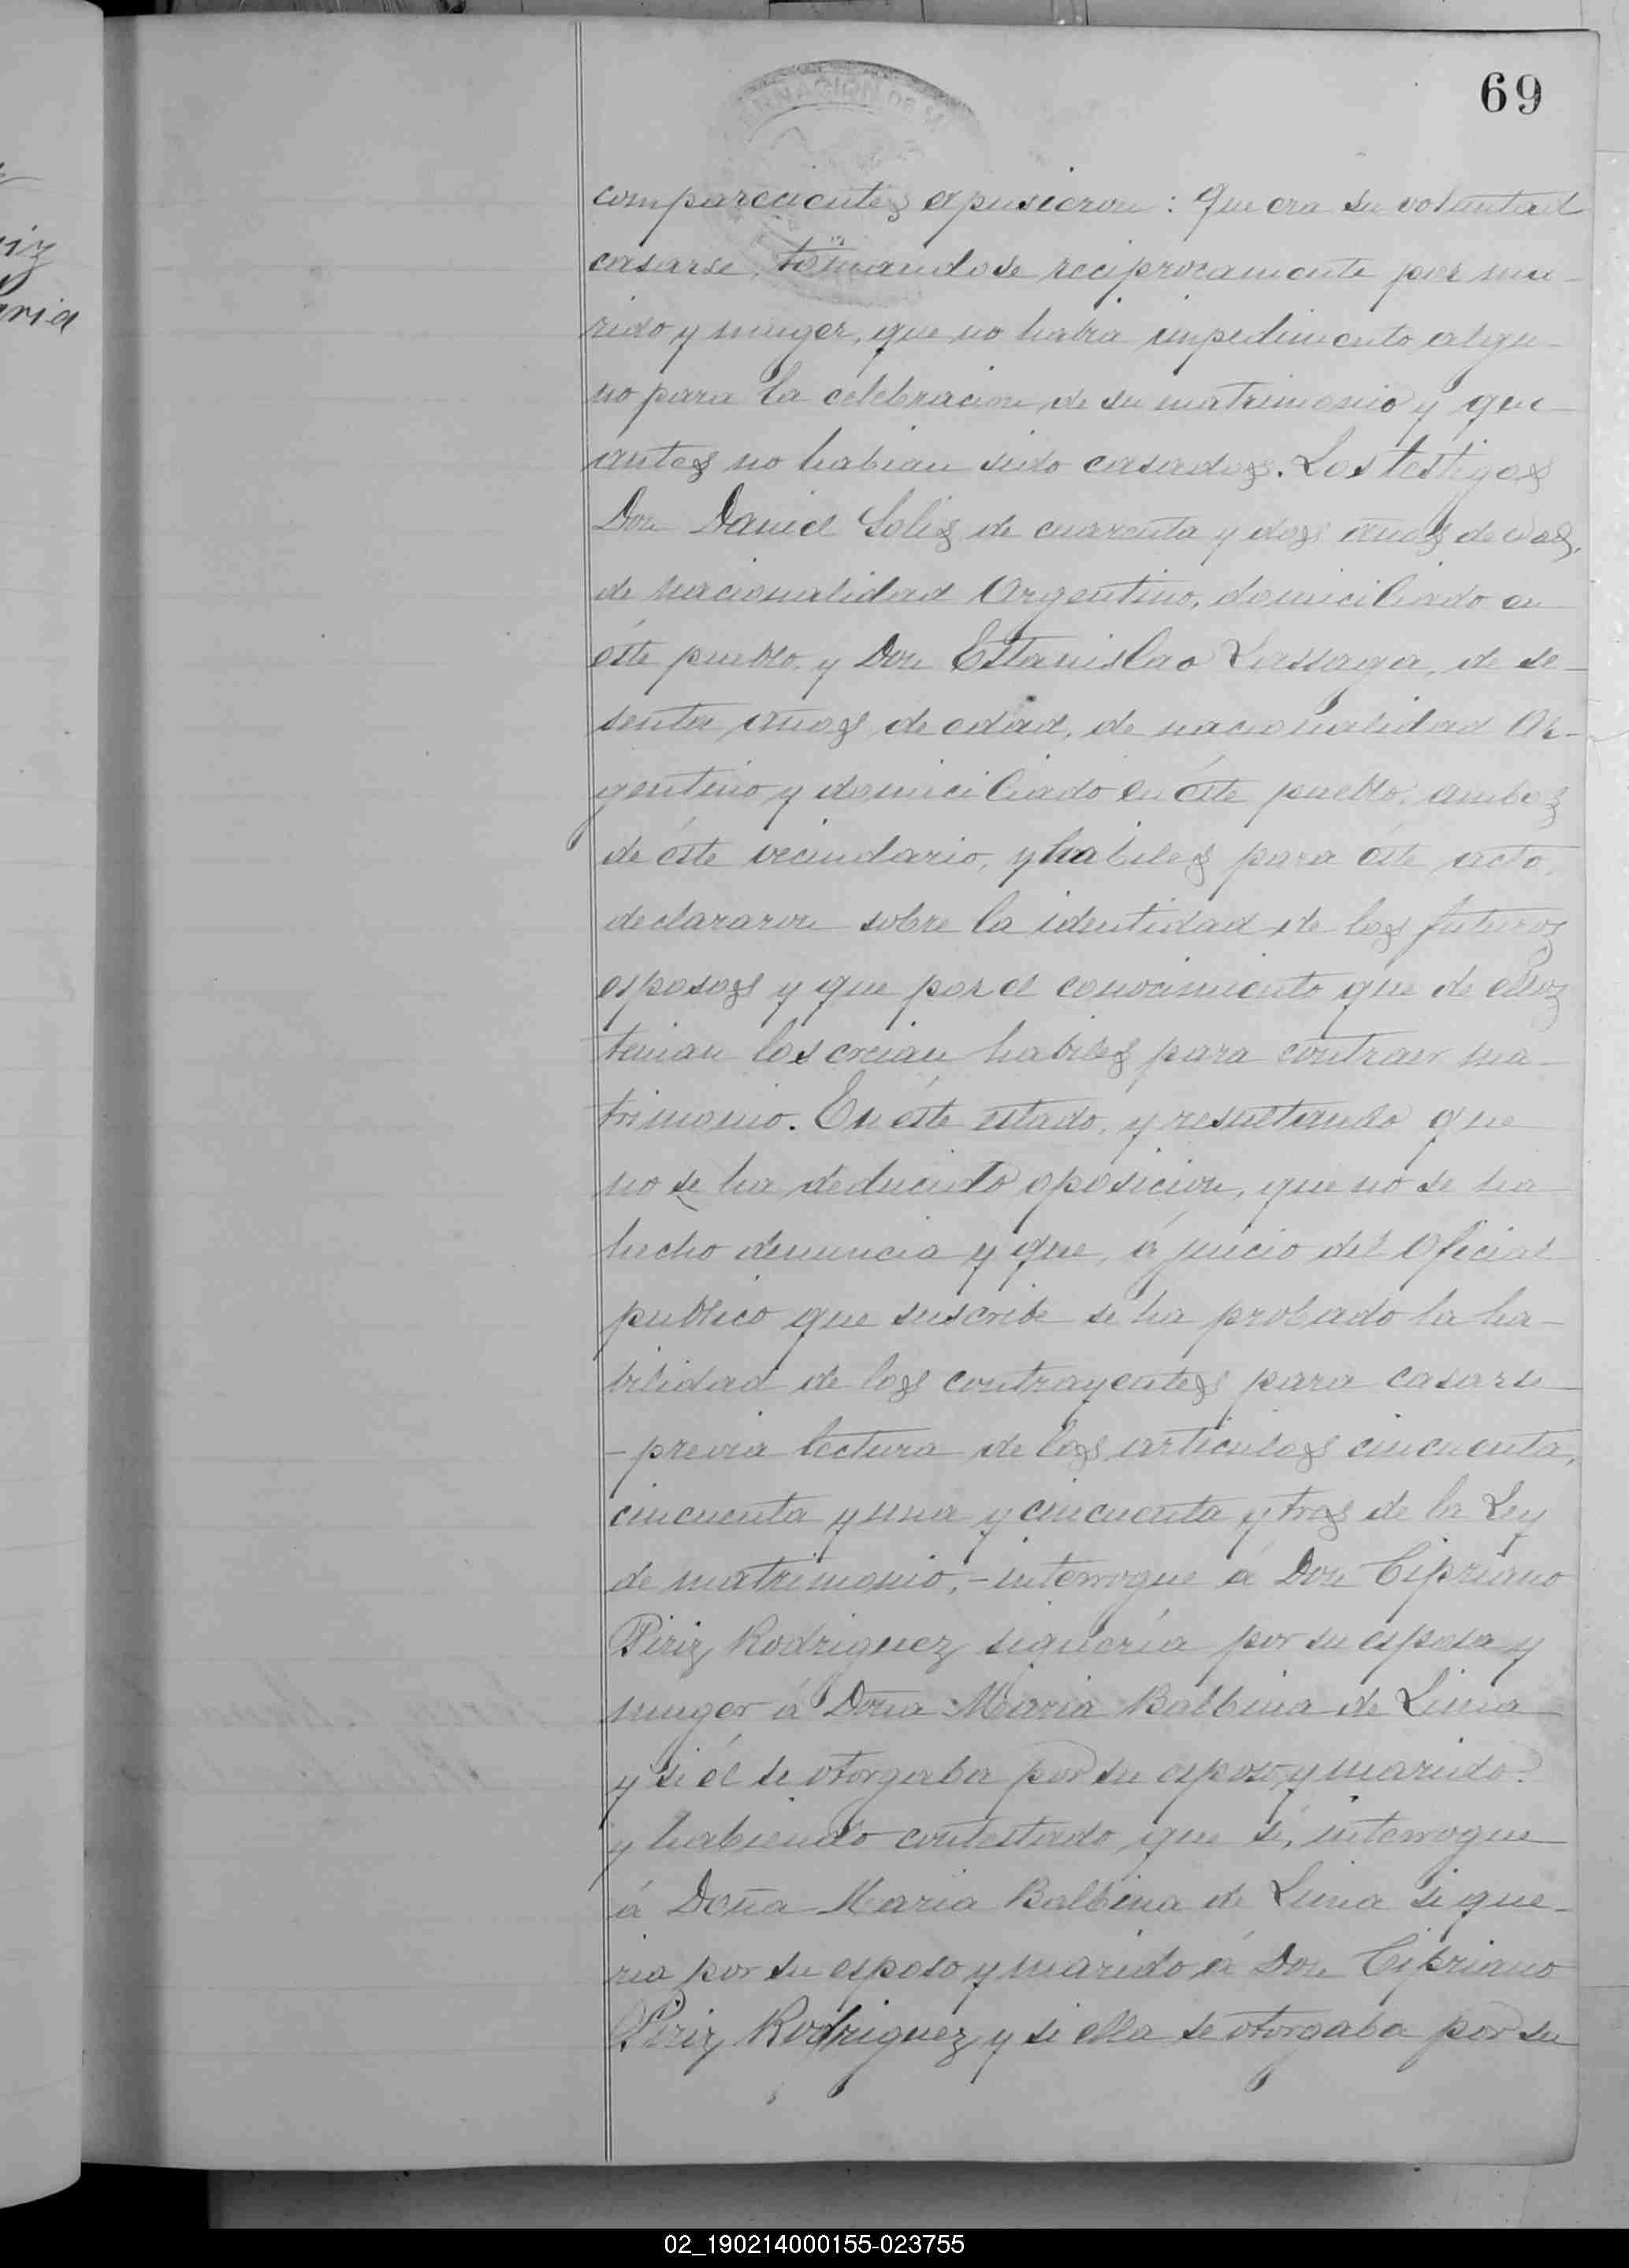 69
NACION DE
iz
aria
comparecientes expusieron: Que era su voluntad
casarse, tomandose reciprocamente por ma-
rido y muger, que no habia impedimento algu-
no para la celebracion de su matrimonio y que
antes no habian sido casados. Los testigos
Don Daniel Solis de cuarenta y dos años de edad,
de nacionalidad Argentino, domiciliado en
éste pueblo, y Don Estanislao Lassaga, de se-
senta años de edad, de nacionalidad Ar-
gentino y domiciliado en éste pueblo, ambos
de éste vecindario, y habiles para éste acto,
declararon sobre la identidad de los futuros
esposos y que por el conocimiento que de ellos
tenian los creian habiles para contraer ma-
trimonio. En éste estado, y resultando que
no se ha deducido oposicion, que no se ha
hecho denuncia y que, á juicio del Oficial
publico que suscribe se ha probado la ha-
bilidad de los contrayentes para casarse
- previa lectura de los articulos cincuenta,
cincuenta y una y cincuenta y tres de la Ley
de matrimonio, - interrogue á Don Cipriano
Piriz Rodriguez si quería por su esposa y
muger á Doña Maria Balbina de Lima
y si él se otorgaba por su esposo y marido?
y habiendo contestado que si, interrogue
á Doña Maria Balbina de Lima si que-
ria por su esposo y marido á Don Cipriano
Piriz Rodriguez y si ella se otorgaba por su
02_190214000155-023755